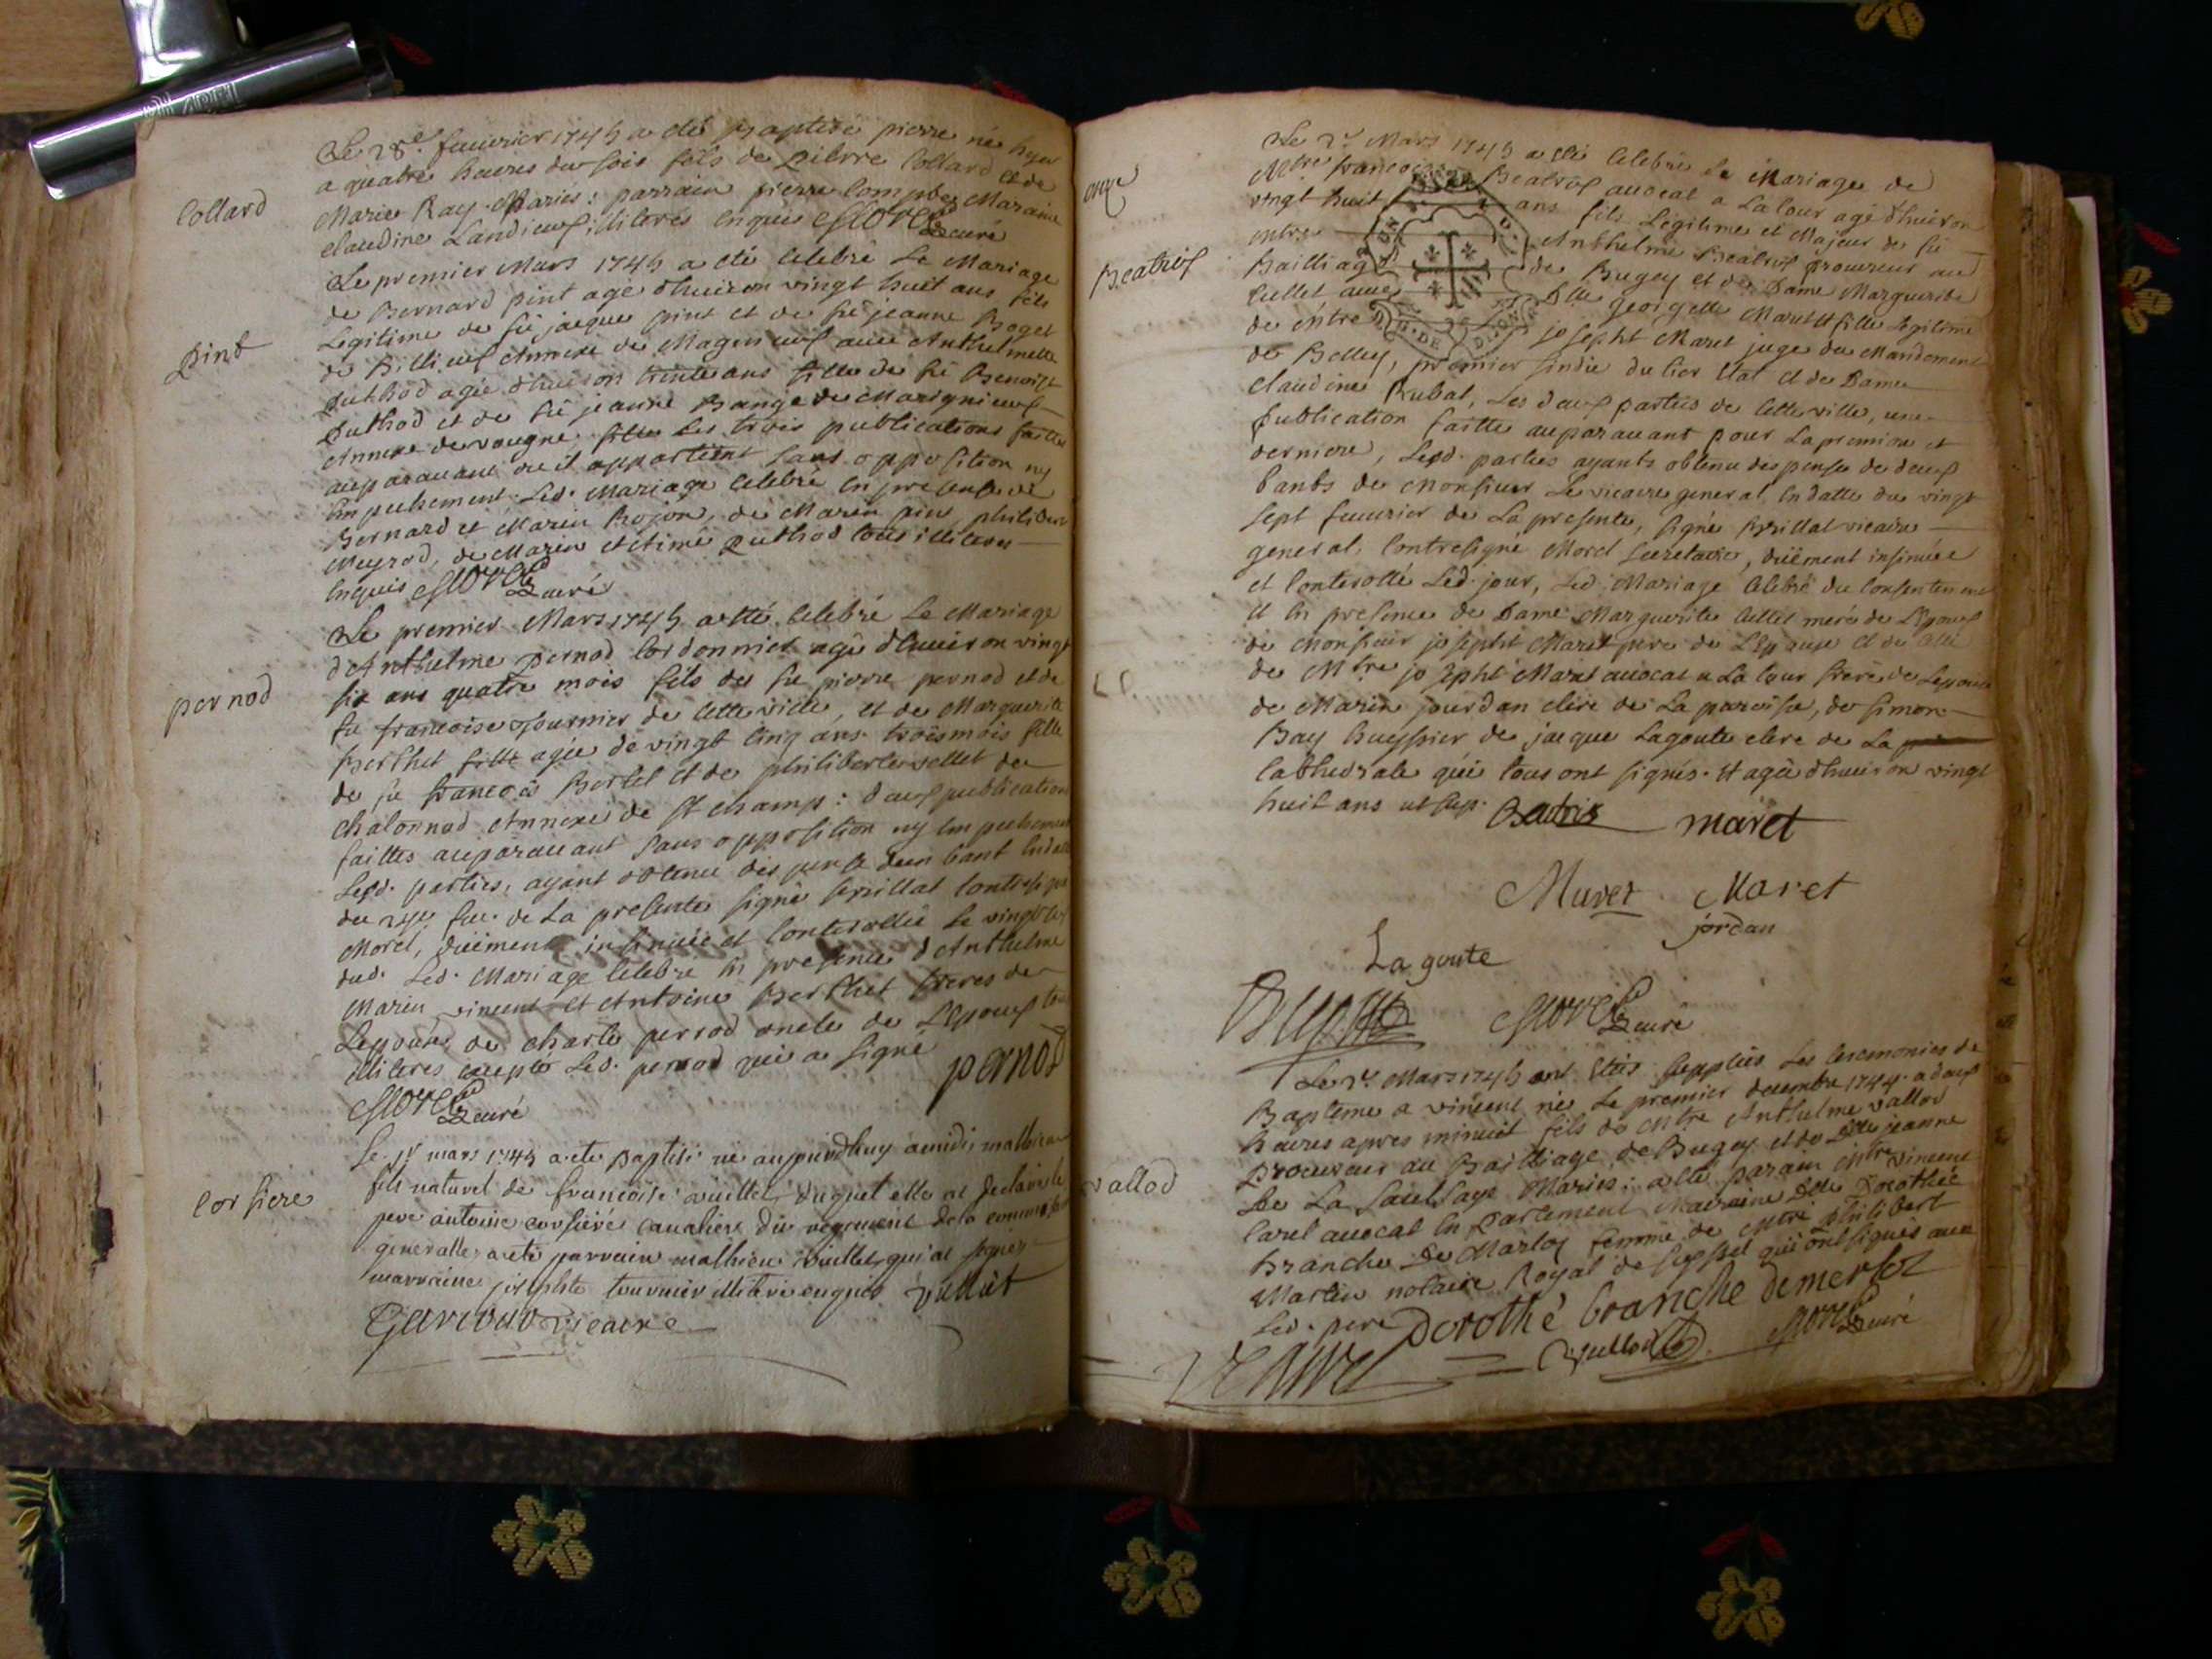 Collard
Le 28e. feuurier 1745 a eté Baptisé pierre né hyer
a quatre heures du soir fils de pierre Collard et de
Marie Ray Mariés: parrain pierre Maraine
claudine illiteres enquis Morel curé
pint
Le premier Mars 1745 a eté Celebré Le Mariage
de Bernard pint agé d'huiron vingt huit ans fils
Legitime de fû jacque pint et de fû jeanne Boget
de Billieuf Annexe de Magnieuf auec Anthelmette
puthod agée d'huiron trente ans fille de fû Benoist
puthod et de fû jeanne Bange de Marignieuf
Annexe de vougne Les trois publications faittes
auparauant ou il appartient sans opposition ny
Empechement Led. Mariage Celebré En presence de
Bernard et Marin Bojon, de Marin pint philibert
Meyrod, de Marin et Aimé puthod tous illiteres
Enquis Morel curé
pernod
Le premier Mars 1745 a eté Celebré Le Mariage
d'Anthelme pernod Cordonnier agé d'huiron vingt
six ans quatre mois fils de fû pierre pernod et de
fû francoise fournier de Cette ville, et de Marguerite
Berthet agée de vingt cinq ans trois mois fille
de fû francois Bertet et de philiberte sellet de
Chalonnod Annexe de St champ: deuf publications
faittes auparauant sans opposition ny Empechement
Lesd. parties, ayant obtenu dispense d'un bant
du 24e feu. de La presente signé Brillat Contresigné
Morel, duëment insinuée et Conterollée Le vingt
dud. Led. Mariage Celebré En presence d'Anthelme
Marin vincent et Antoine Berthet freres de
L'epouse, de charle pernod oncle de L'Epouf tous
illiteres excepté Led. pernod qui a signé pernod
Morel curé
Corsiere
Le 1r mars 1745 a ete Baptisé né aujourdhuy a midi mathieu
fils naturel de francoise vuillet duquel elle at declaré le
pere antoine corsiere Caualiere du regiment de la
generalle a ete parrain mathieu vuillet qui at signe
marraine josephte tournier illitere enquise Vuillet
vicaire
Beatrix
Le 2r Mars 1745 a eté Celebré Le Mariage de
Mtre francois Beatrix auocat a La Cour agé d'huiron
vingt huit ans fils Legitime et Majeur de fû
Mtre Anthelme Beatrix procureur au
Bailliage de Bugey et de Dame Marguerite
Cullet auec Dlle georgette Maret fille Legitime
de Mtre josepht Maret juge du Mandement
de Belley, premier sindic du tier Etat et de Dame
Claudine Rubat, Les deuf parties de Cette ville, une
publication faitte auparauant pour La premiere et
derniere, Lesd. parties ayants obtenu dispense de deuf
bants de Monsieur Le vicaire general, En datte du vingt
sept feuurier de La presente, signé Brillat vicaire
general, Contresigné Morel secretaire, duëment insinuée
et Conterollée Led. jour, Led. Mariage Celebré du Consentement
et En presence de Dame Marguerite Cullet mere de L'Epouf
de Monsieur josepht Maret pere de L'Epouse et de
de Mtre josepht Maret auocat a La Cour frere de Lepouse
de Marin jourdan clerc de La paroisse, de simon
Bay huyssier de jacque Lagoutte clerc de La
Cathedrale qui tous ont signés. Et agée d'huiron vingt
huit ans ut sup. Beatrix maret
Maret Maret
jordan
La goute
Morel curé
vallod
Le 2r Mars 1745 ont Etés supplées Les Ceremonies de
Bapteme a vincent né Le premier decembre 1744 a deuf
heures apres minuit fils de Mtre Anthelme vallod
procureur au Bailliage de Bugey et de Dlle jeanne
De La Mariés: a eté parain Mtre vincent
Carel auocat En parlement Maraine Dlle Dorothée
Branche De Marloz femme de Mtre philibert
Martin notaire Royal de seyssel qui ont signés auec
Led. pere Dorothé branche demerloz
Vallod Morel curé